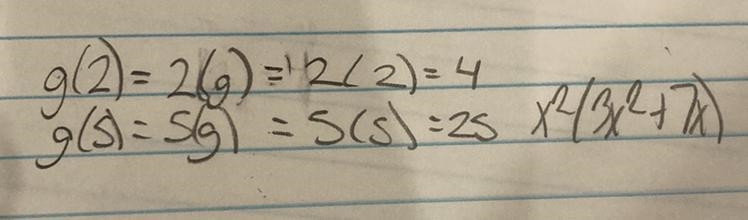 g(2) = 2(g) = 2(2) = 4
g(5) = 5(g) = 5(5) = 25 x²(3x² + 7x)